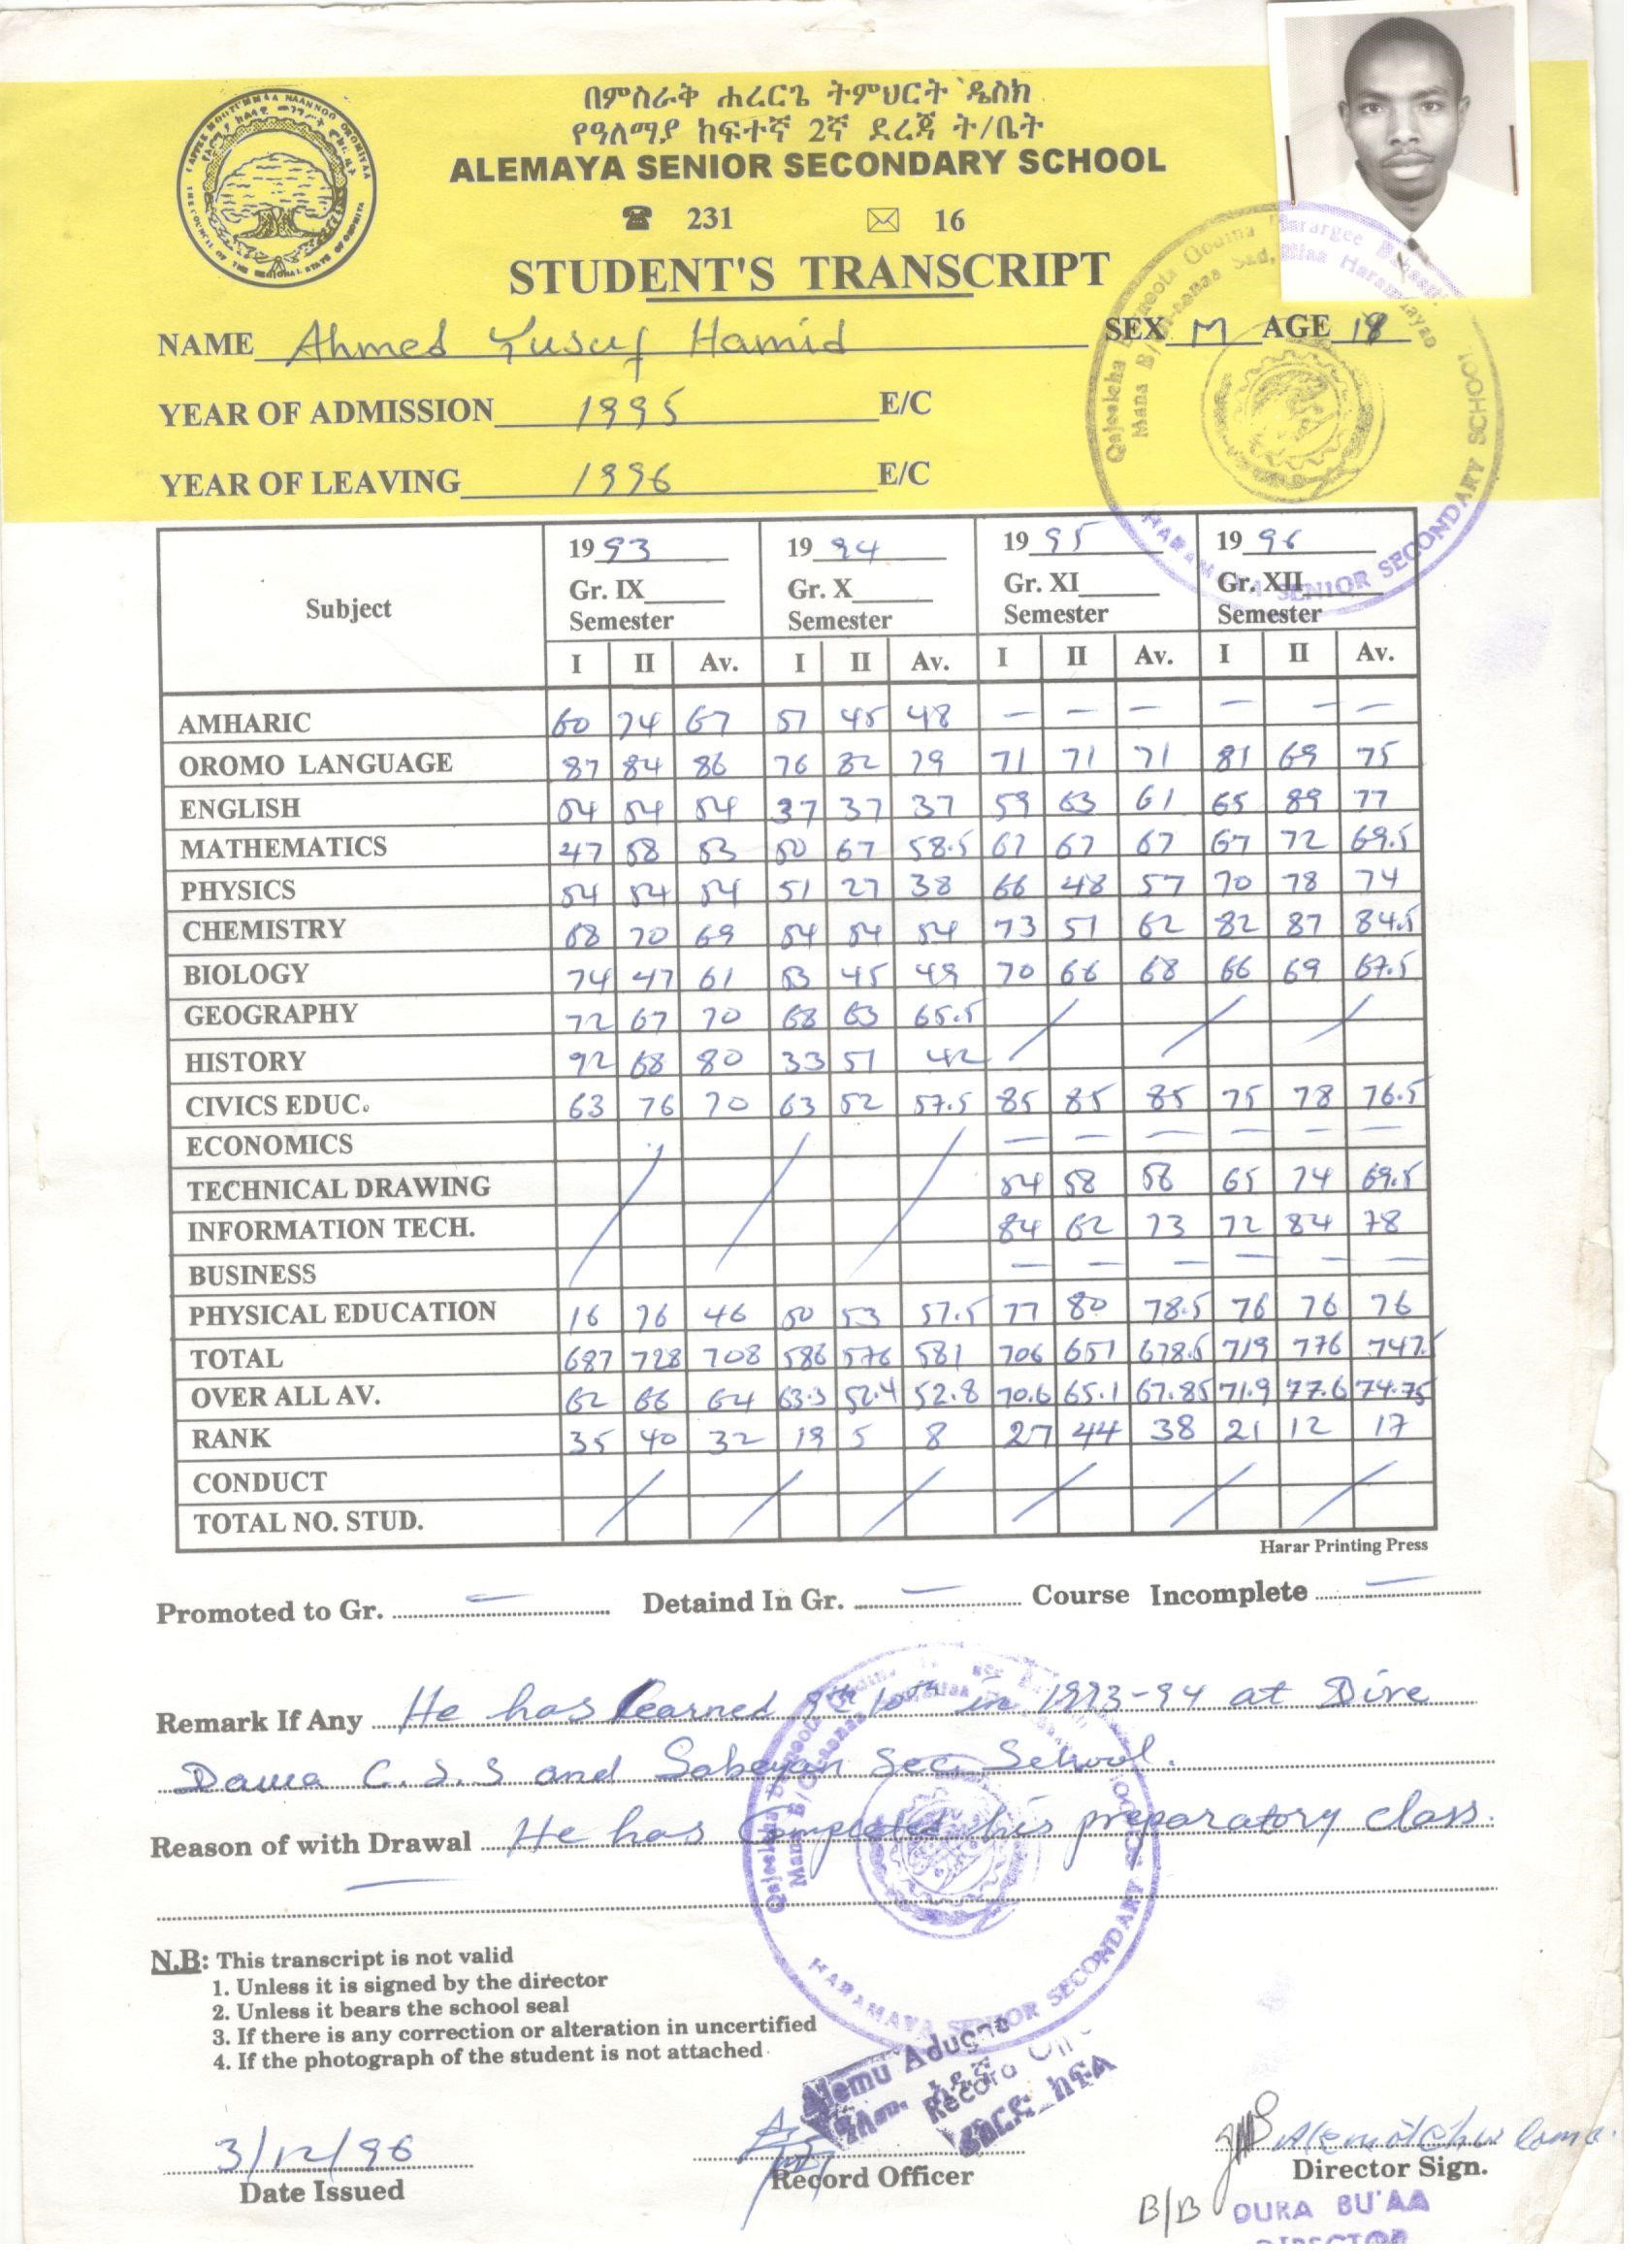 በምስራቅ ሐረርጌ ትምህርት ዴስክ
የዓለማያ ከፍተኛ 2ኛ ደረጃ ት/ቤት
ALEMAYA SENIOR SECONDARY SCHOOL
231 16
STUDENT'S TRANSCRIPT
NAME Ahmed Yusuf Hamid SEX M AGE 18
YEAR OF ADMISSION 1995 E/C
YEAR OF LEAVING 1996 E/C
HARAMAYA SENIOR SECONDARY SCHOOL
Subject 1993 1994 1995 1996
Gr. IX Gr. X Gr. XI Gr. XII
Semester Semester Semester Semester
I II Av. I II Av. I II Av. I II Av.
AMHARIC 60 74 67 51 45 48 — — — — — —
OROMO LANGUAGE 87 84 86 76 82 79 71 71 71 81 69 75
ENGLISH 54 54 54 37 37 37 59 63 61 65 89 77
MATHEMATICS 47 58 53 50 67 58.5 67 67 67 67 72 69.5
PHYSICS 54 54 54 51 27 38 66 48 57 70 78 74
CHEMISTRY 68 70 69 54 54 54 73 51 62 82 87 84.5
BIOLOGY 74 47 61 53 45 49 70 66 68 66 69 67.5
GEOGRAPHY 72 67 70 68 63 65.5
HISTORY 92 68 80 33 51 42
CIVICS EDUC. 63 76 70 63 52 57.5 85 85 85 75 78 76.5
ECONOMICS — — — — — —
TECHNICAL DRAWING 54 58 56 65 74 69.5
INFORMATION TECH. 84 62 73 72 84 78
BUSINESS — — — — — —
PHYSICAL EDUCATION 16 76 46 50 53 57.5 77 80 78.5 76 76 76
TOTAL 687 728 708 586 576 581 706 651 678.5 719 776 747.5
OVER ALL AV. 62 66 64 63.3 52.4 52.8 70.6 65.1 67.85 71.9 77.6 74.75
RANK 35 40 32 19 5 8 27 44 38 21 12 17
CONDUCT
TOTAL NO. STUD.
Harar Printing Press
Promoted to Gr. — Detaind In Gr. — Course Incomplete —
Remark If Any He has learned 9th 10th in 1993-94 at Dire
Dawa C.S.S and Sabeyan Sec. School.
Reason of with Drawal He has completed his preparatory class.
HARAMAYA SENIOR SECONDARY
N.B: This transcript is not valid
1. Unless it is signed by the director
2. Unless it bears the school seal
3. If there is any correction or alteration in uncertified
4. If the photograph of the student is not attached
Alemu Adugna
3/12/96
Date Issued Record Officer Director Sign.
B/B DURA BU'AA
DIRECTOR